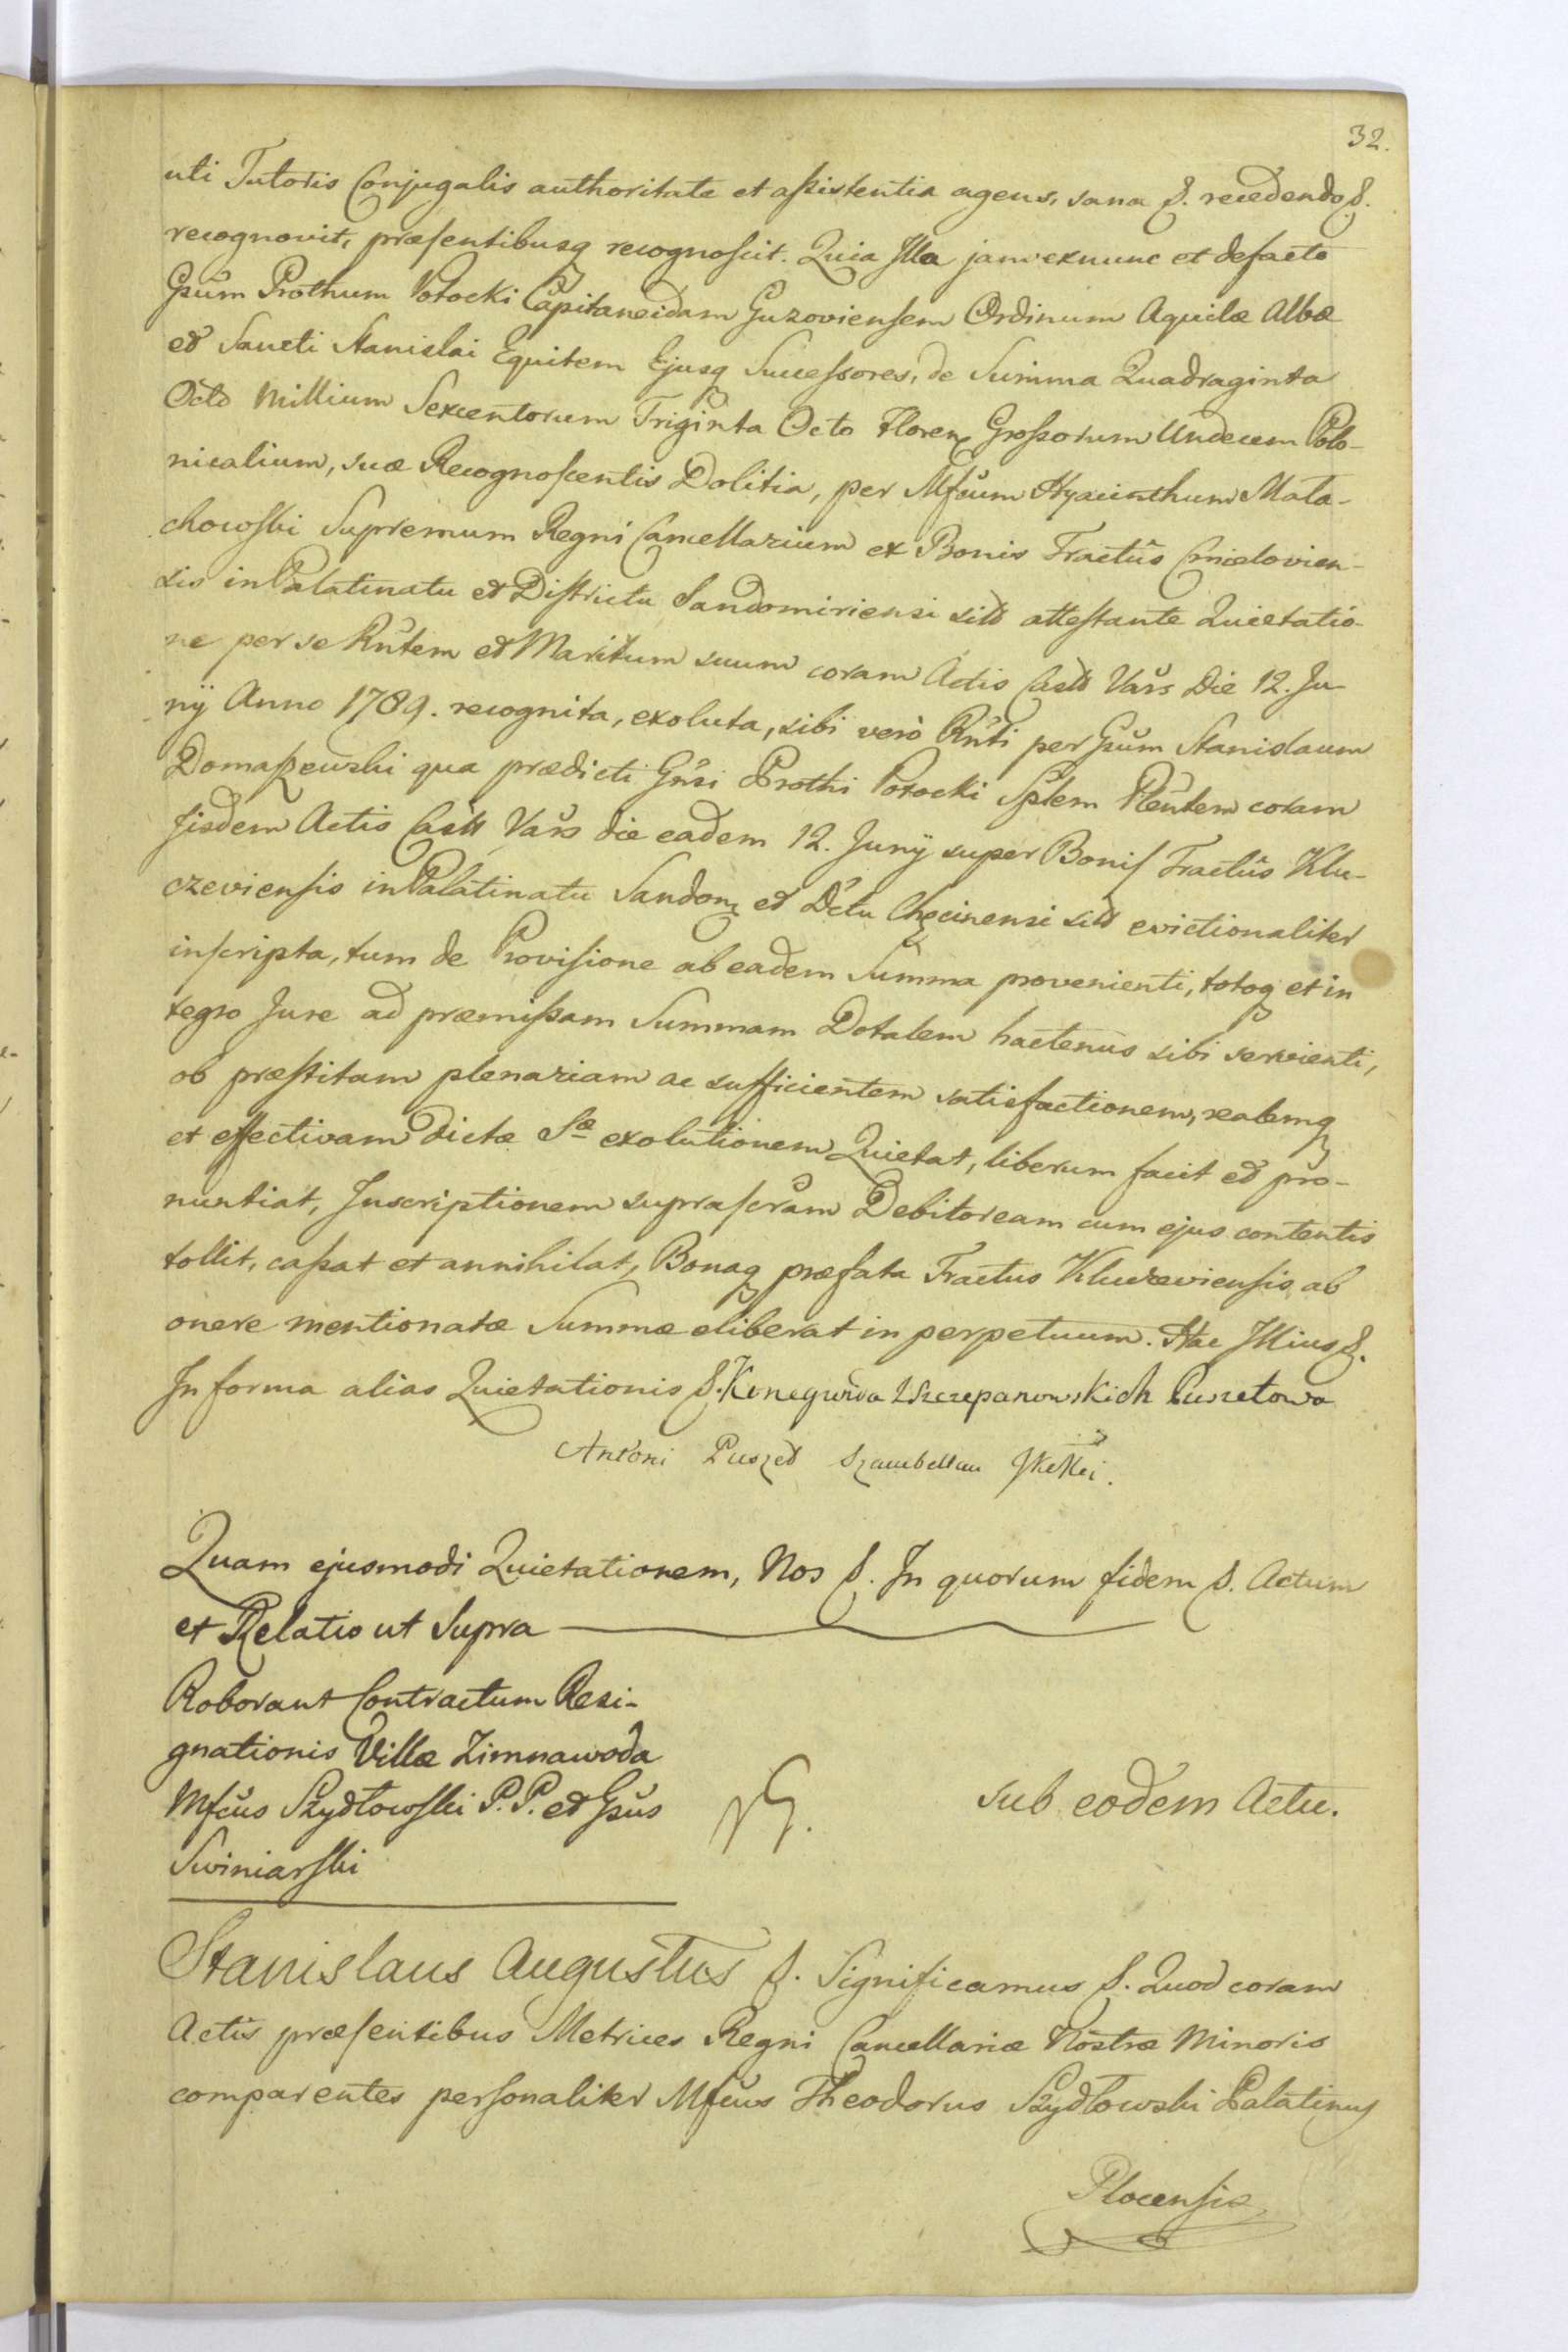 32.
uti Tutoris Conjugalis authoritate et assistentia agens, sana &. recedendo &.
recognovit, præsentibusq recognoscit. Quia Illa jam exnunc et defacto
Gsum Prothum Potocki Capitaneidam Guzoviensem Ordinum Aquilæ Albæ
et Sancti Stanislai Equitem Ejusq Successores, de Summa Quadraginta
Octo Millium Sexcentorum Triginta Octo Floren Grossorum Undecem Polo-
nicalium, suæ Recognoscentis Dotitia, per Mfcum Hyacinthum Mała-
chowski Supremum Regni Cancellarium ex Bonis Tractûs Cmielovien-
sis in Palatinatu et Districtu Sandomiriensi sitt attestante Quietatio-
ne per se Rntem et Maritum suum coram Actis Castt Vars Die 12. Ju-
nÿ Anno 1789. recognita, exoluta, sibi verò Rnti per Gsum Stanislaum
Domaszewski qua prædicti Gnsi Prothi Potocki Splem Plentem coram
iisdem Actis Castt Vars die eadem 12. Junÿ super Bonis Tractûs Klu-
czeviensis in Palatinatu Sandom et Dctu Chęcinensi sitt evictionaliter
inscripta, tum de Provisione ab eadem Summa provenienti, totoq et in
tegro Jure ad præmissam Summam Dotalem hactenus sibi servienti,
ob præstitam plenariam ac sufficientem satisfactionem, realemq
et effectivam dictæ Sæ exolutionem Quietat, liberum facit et pro-
nuntiat, Inscriptionem suprascram Debitoream cum ejus contentis
tollit, cassat et annihilat, Bonaq præfata Tractus Kluczeviensis ab
onere mentionatæ Summæ eliberat in perpetuum. Hac Illius &.
In forma alias Quietationis &. Konegunda z Szczepanowskich Puszetowa
Antoni Puszet Szambellan JKeMci.
Quam ejusmodi Quietationem, Nos &. In quorum fidem &. Actum
et Relatio ut Supra
Roborant Contractum Resi-
gnationis Villæ Zimnawoda
Mfcus Szydłowski P. P. et Gsus
Swiniarski
sub eodem Actu.
Stanislaus Augustus &. Significamus &. Quod coram
Actis præsentibus Metrices Regni Cancellariæ Nostræ Minoris
comparentes personaliter Mfcus Theodorus Szydłowski Palatinus
Plocensis